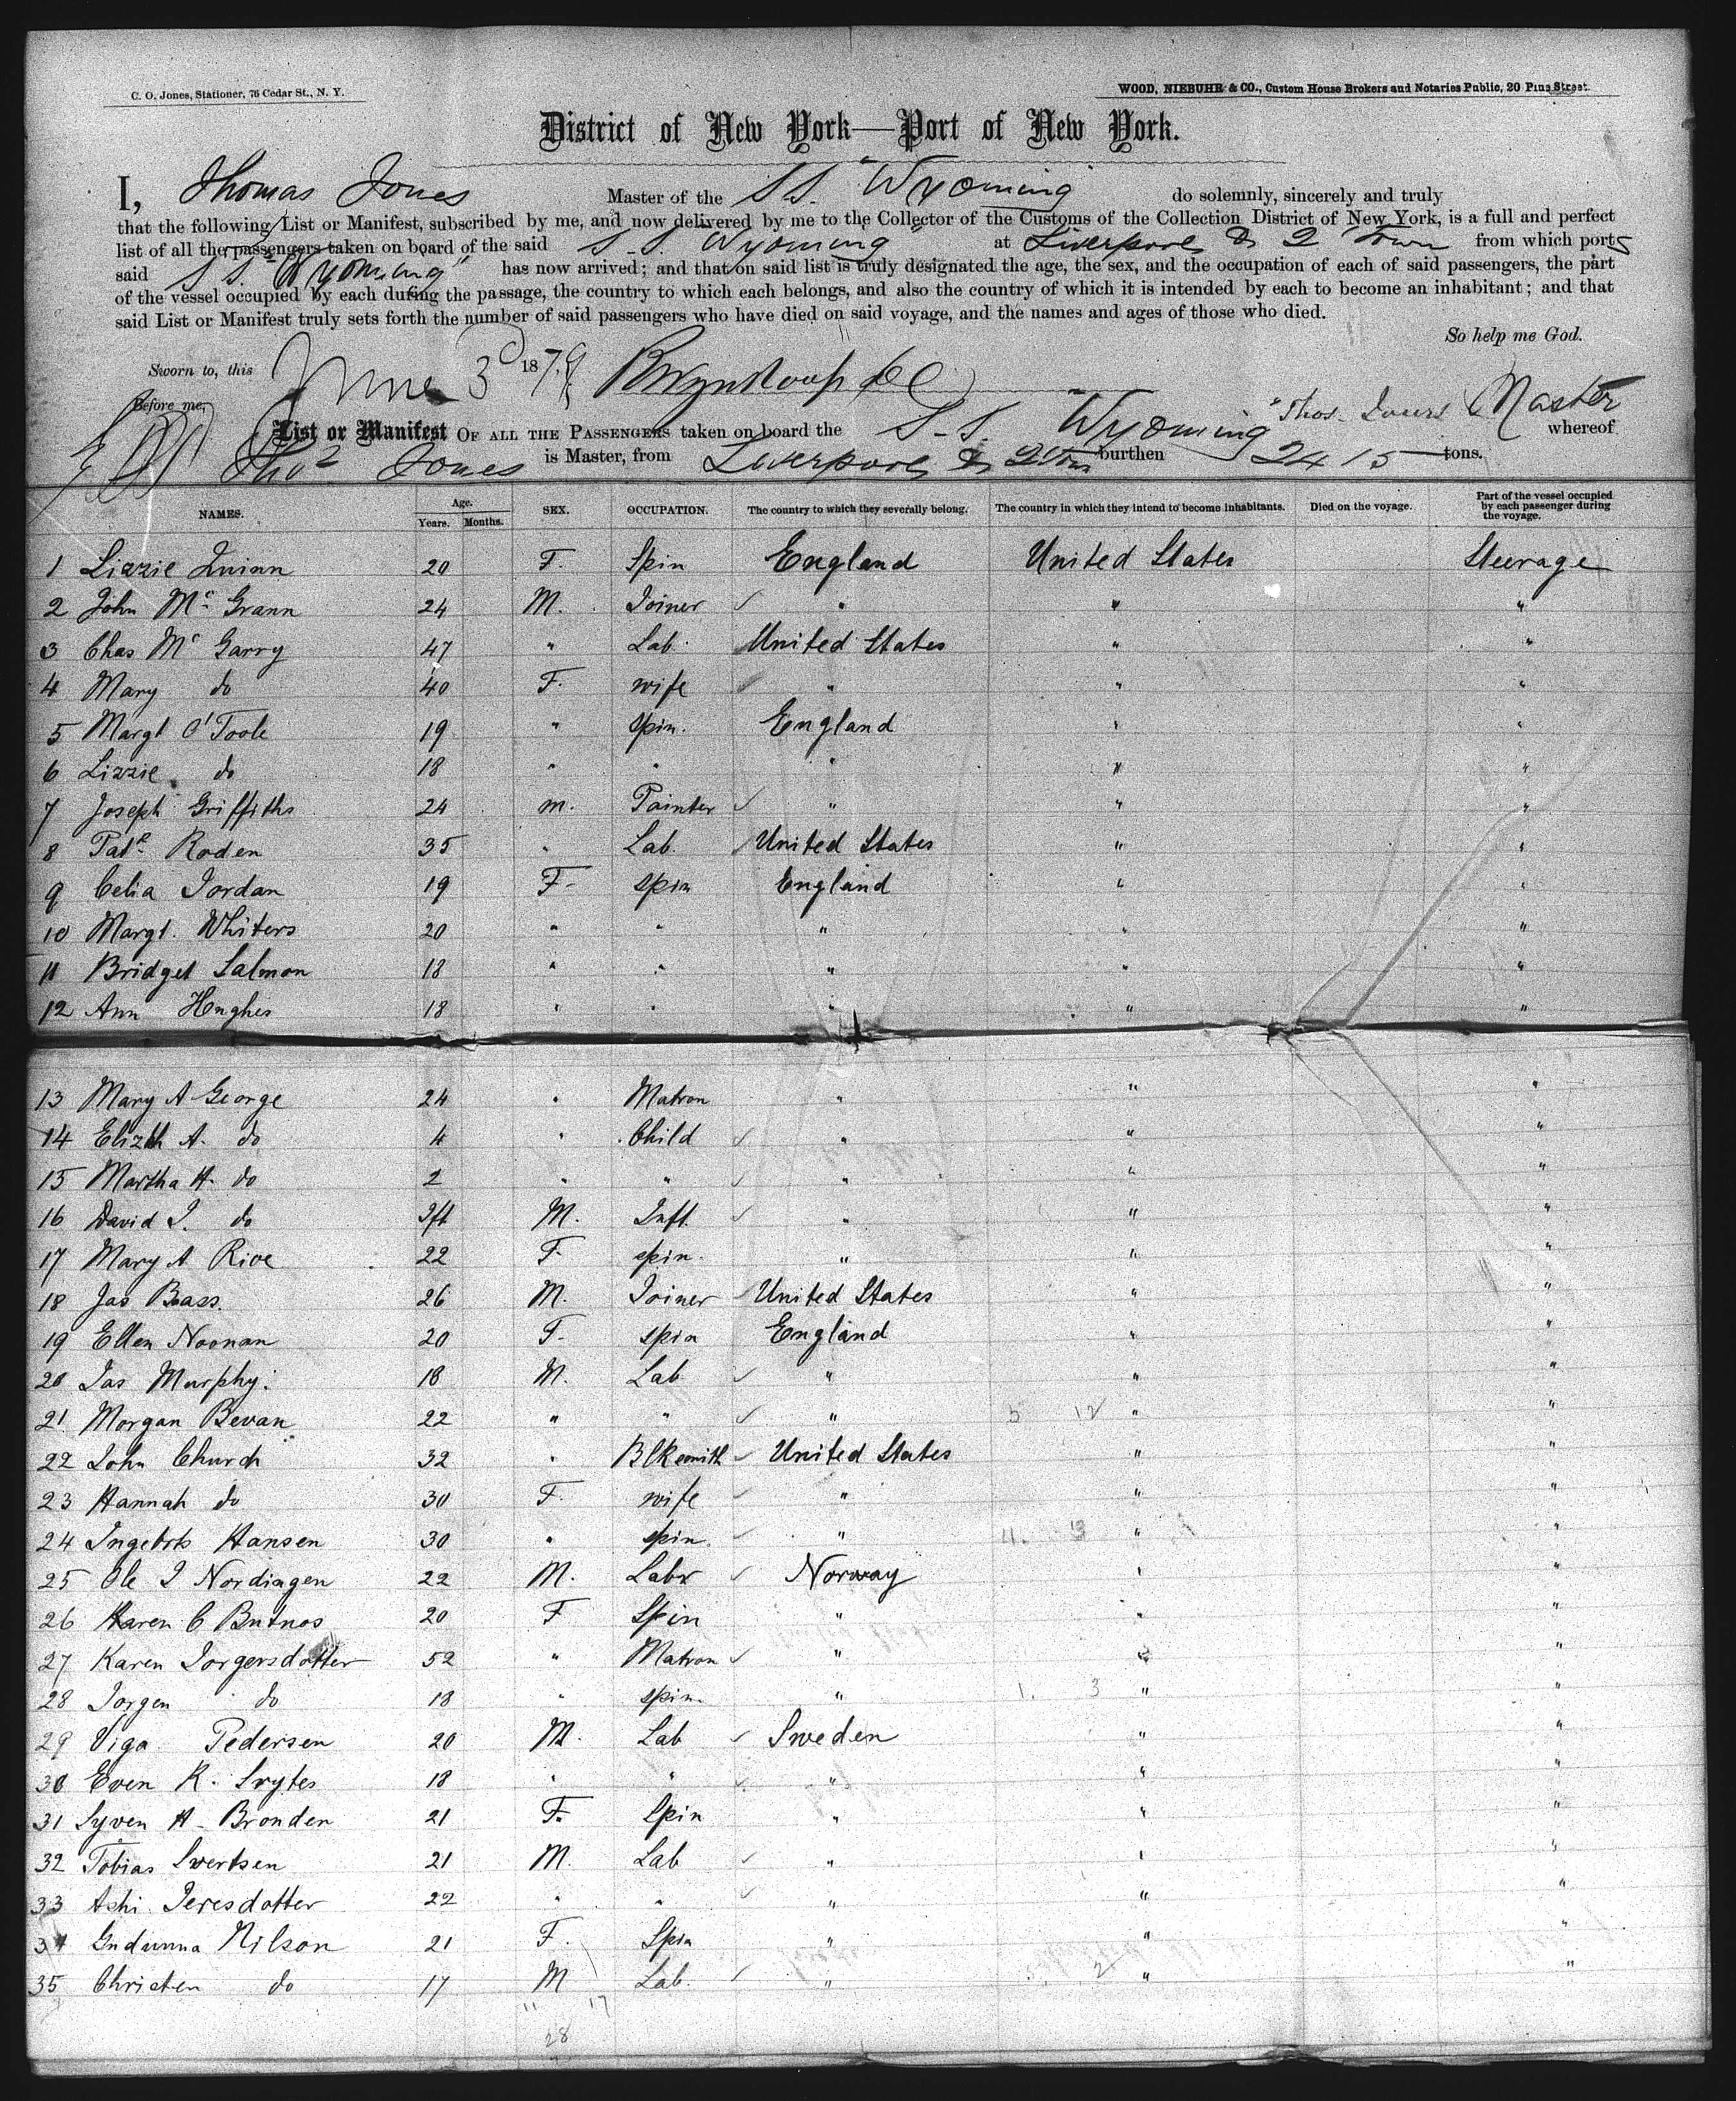 C. O. Jones, Stationer, 76 Cedar St., N. Y.
WOOD, NIEBUHR & CO., Custom House Brokers and Notaries Public, 20 Pine Street.
District of New York—Port of New York.
I, Thomas Jones Master of the S.S. "Wyoming" do solemnly, sincerely and truly
that the following List or Manifest, subscribed by me, and now delivered by me to the Collector of the Customs of the Collection District of New York, is a full and perfect
list of all the passengers taken on board of the said S.S. "Wyoming" at Liverpool & Q Town from which ports
said S.S. "Wyoming" has now arrived; and that on said list is truly designated the age, the sex, and the occupation of each of said passengers, the part
of the vessel occupied by each during the passage, the country to which each belongs, and also the country of which it is intended by each to become an inhabitant; and that
said List or Manifest truly sets forth the number of said passengers who have died on said voyage, and the names and ages of those who died.
So help me God.
Sworn to, this June 3d 1879
Before me, Thos. Jones Master
List or Manifest OF ALL THE PASSENGERS taken on board the S.S. "Wyoming" whereof
Thos Jones is Master, from Liverpool & Q Town burthen 2415 tons.
NAMES. Age. Years. Months. SEX. OCCUPATION. The country to which they severally belong. The country in which they intend to become inhabitants. Died on the voyage. Part of the vessel occupied by each passenger during the voyage.
1 Lizzie Quinn 20 F. Spin England United States Steerage
2 John Mc Grann 24 M. Joiner ✓ " " "
3 Chas Mc Garry 47 " Lab. United States " "
4 Mary do 40 F. wife ✓ " " "
5 Margt O'Toole 19 " spin. England " "
6 Lizzie do 18 " " " " "
7 Joseph Griffiths 24 m. Painter ✓ " " "
8 Patk Roden 35 " Lab. ✓ United States " "
9 Celia Jordan 19 F. spin England " "
10 Margt. Whiters 20 " " " " "
11 Bridget Salmon 18 " " " " "
12 Ann Hughes 18 " " " " "
13 Mary A George 24 " Matron " " "
14 Elizth A. do 4 " Child ✓ " " "
15 Martha H. do 2 " " ✓ " " "
16 David J. do Ift M. Inft. ✓ " " "
17 Mary A Rice 22 F. spin. " " "
18 Jas Bass. 26 M. Joiner ✓ United States " "
19 Ellen Noonan 20 F. spin England " "
20 Jas Murphy. 18 M. Lab ✓ " " "
21 Morgan Bevan 22 " " ✓ " 5 12 " "
22 John Church 32 " Blksmith ✓ United States " "
23 Hannah do 30 F. wife ✓ " " "
24 Hansen 30 " spin. ✓ " 11. 13 " "
25 Ole J Nordiagen 22 M. Labr ✓ Norway " "
26 Karen C 20 F Spin " " "
27 Karen Jorgersdotter 52 " Matron ✓ " " "
28 Jorgen do 18 " spin. " 1. 3 " "
29 Viga Pedersen 20 M. Lab ✓ Sweden " "
30 Even K. 18 " " ✓ " " "
31 Syven A. Bronden 21 F. Spin " " "
32 Tobias Svertsen 21 M. Lab ✓ " " "
33 22 " " ✓ " " "
34 Nilson 21 F. Spin " " "
35 Christen do 17 M Lab. ✓ " 2 " "
11 17
28